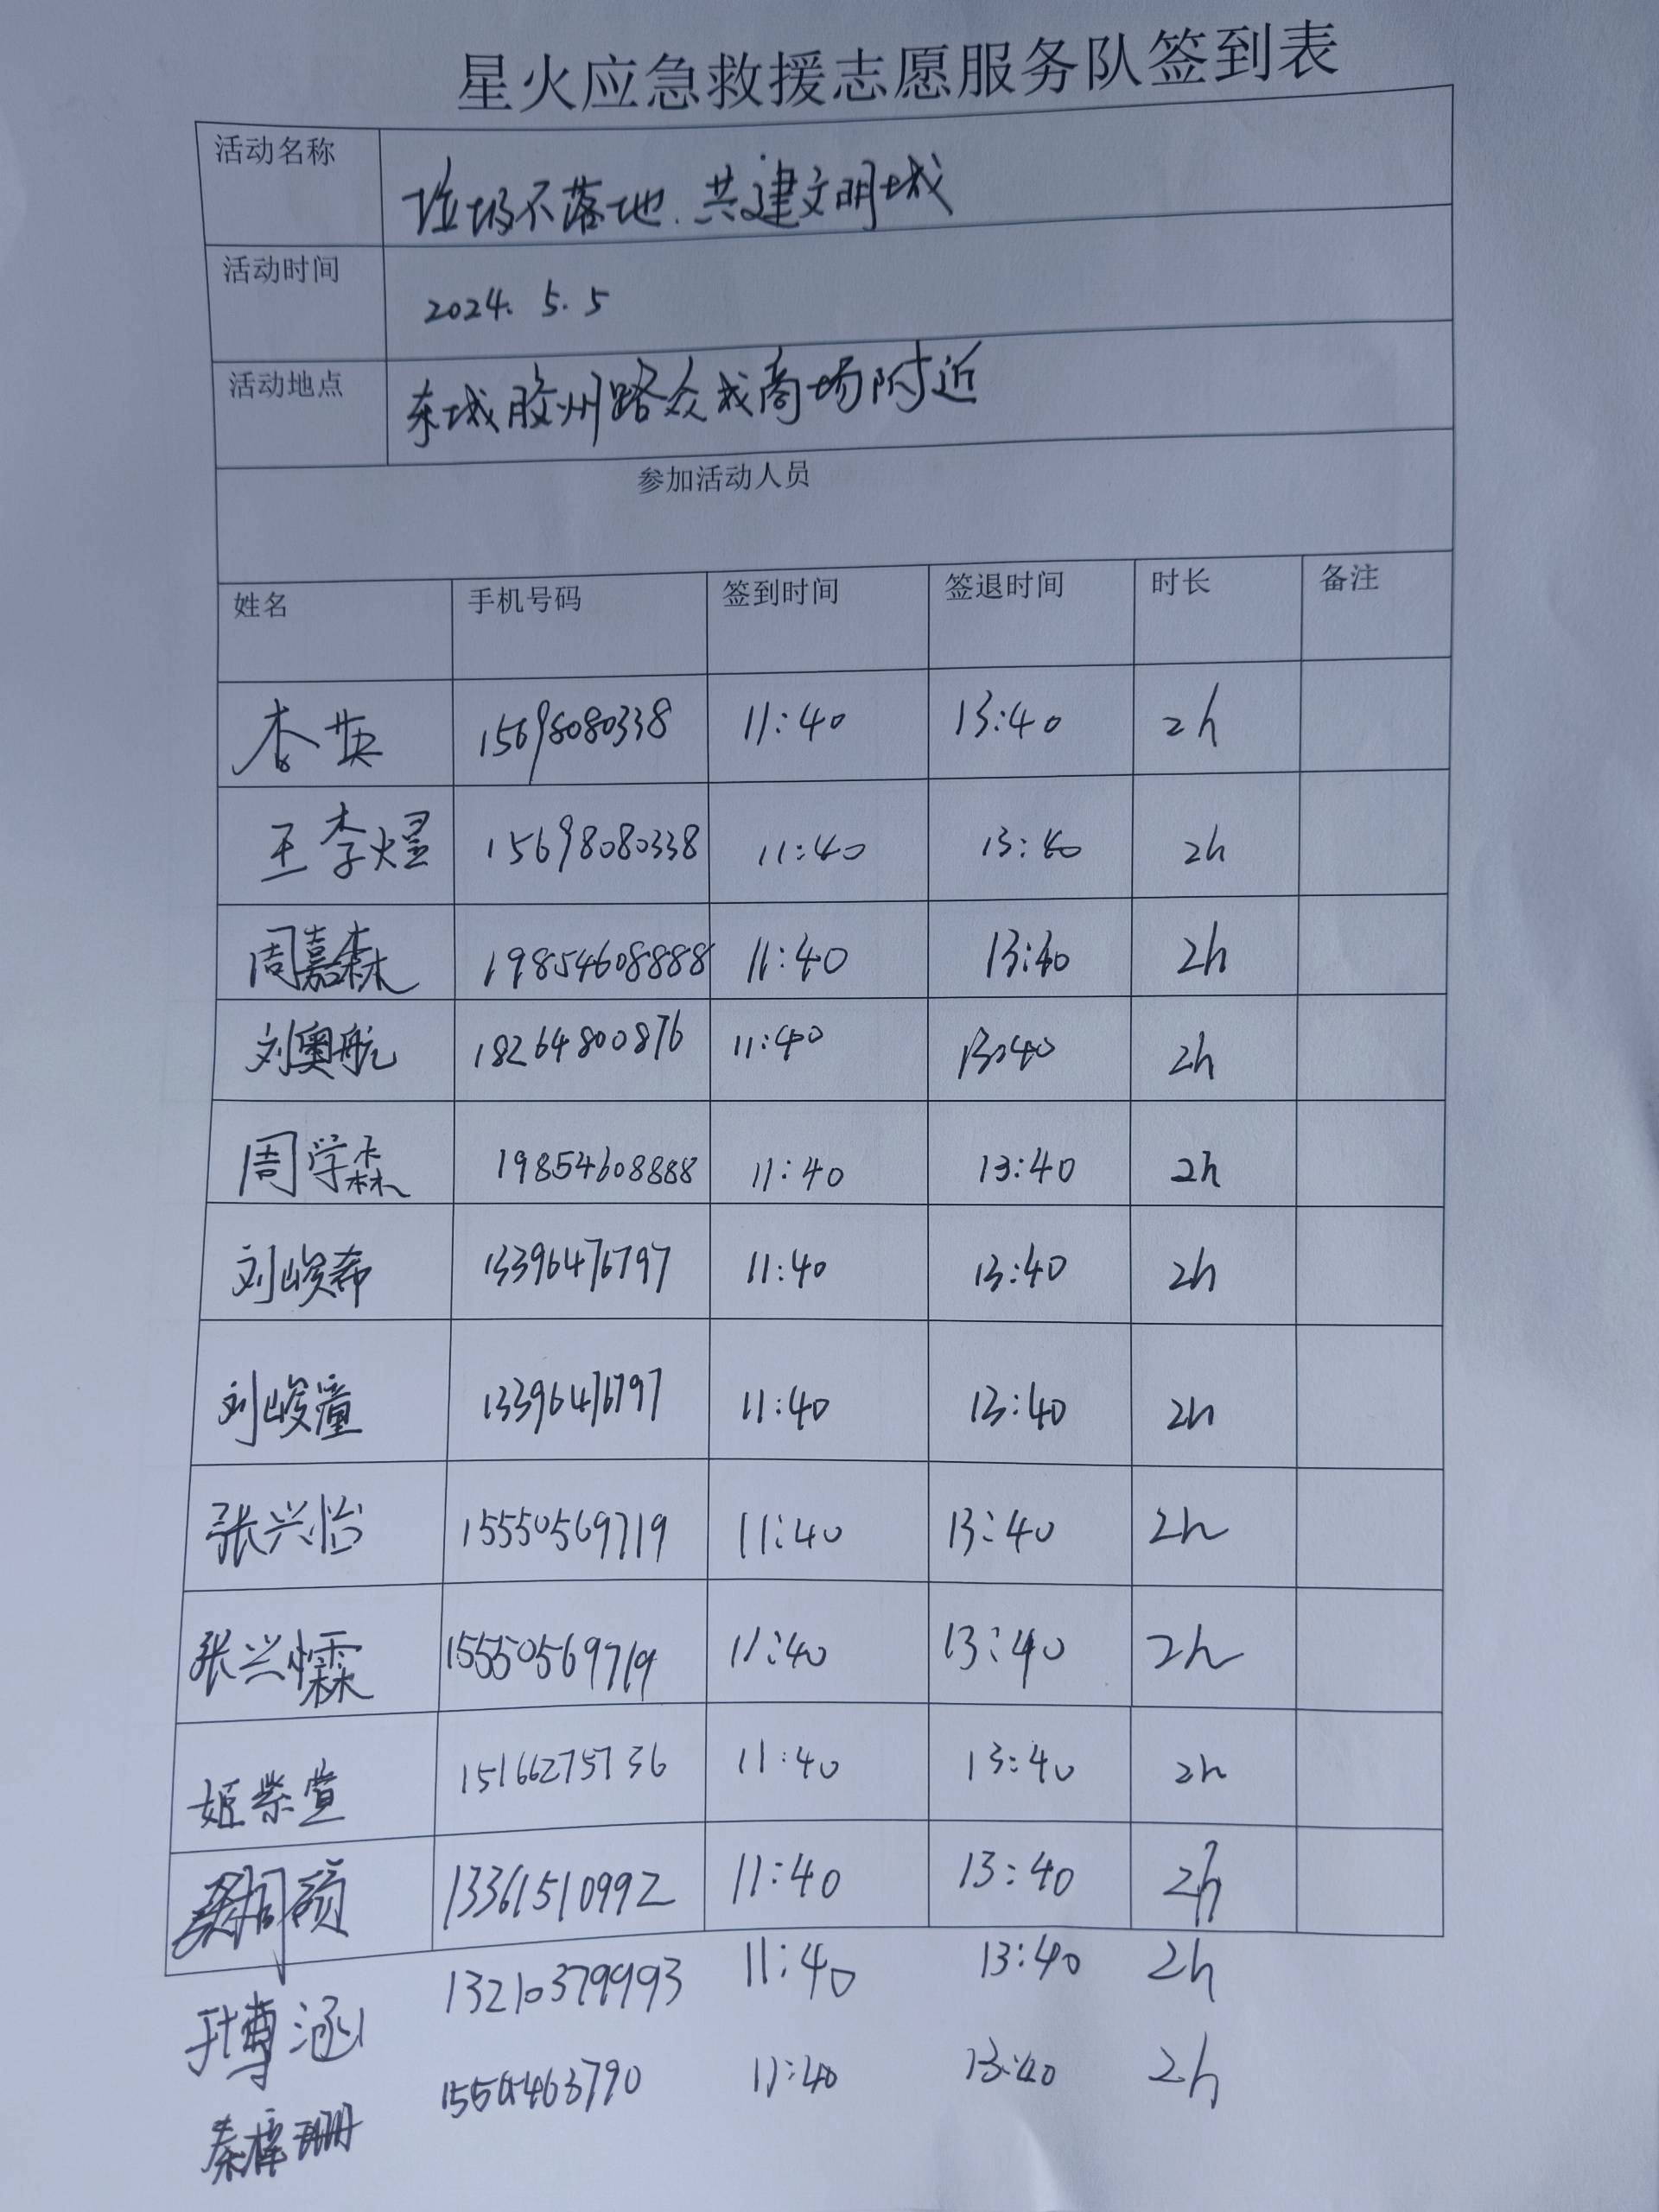 星火应急救援志愿服务队签到表
活动名称 垃圾不落地.共建文明城
活动时间 2024.5.5
活动地点 东城胶州路众成商场附近
参加活动人员
姓名 手机号码 签到时间 签退时间 时长 备注
李英 15698080338 11:40 13:40 2h
王李煜 15698080338 11:40 13:40 2h
周嘉森 19854608888 11:40 13:40 2h
刘奥航 18264800876 11:40 13:40 2h
周学森 19854608888 11:40 13:40 2h
刘峻希 13396476797 11:40 13:40 2h
刘峻 13396476797 11:40 13:40 2h
张兴怡 15550569719 11:40 13:40 2h
张兴 15550569719 11:40 13:40 2h
姬紫萱 15166275736 11:40 13:40 2h
13361510992 11:40 13:40 2h
博涵 13210379993 11:40 13:40 2h
秦梓珊 11:40 13:40 2h